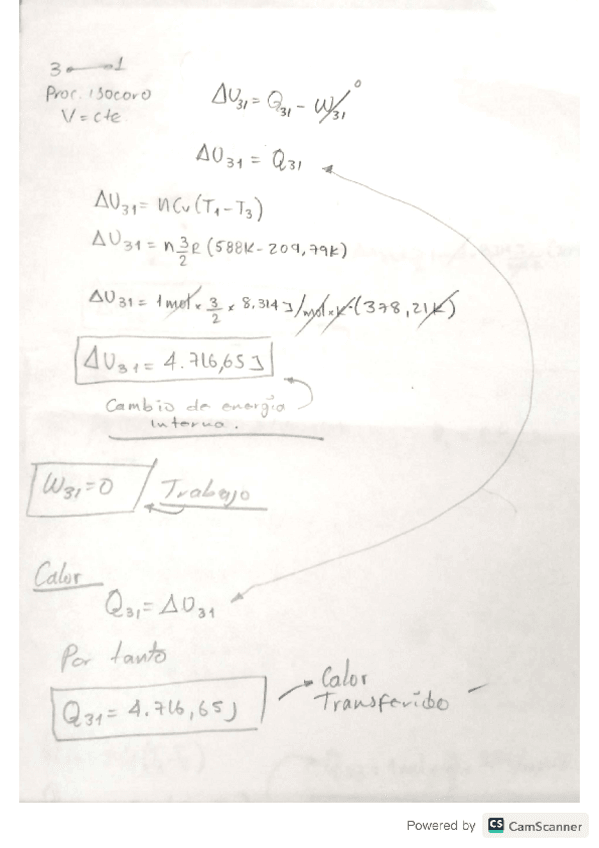 3 ⟷ 1
Proc. isocoro
V = cte
ΔU31 = Q31 - W31 0
ΔU31 = Q31
ΔU31 = nCv(T1-T3)
ΔU31 = n 3/2 R (588K - 209,79K)
ΔU31 = 1mol × 3/2 × 8,314 J/mol×K·(378,21K)
ΔU31 = 4.716,65 J
Cambio de energía
interna.
W31=0 / Trabajo
Calor
Q31 = ΔU31
Por tanto
Q31 = 4.716,65 J
Calor
Transferido
Powered by CS CamScanner